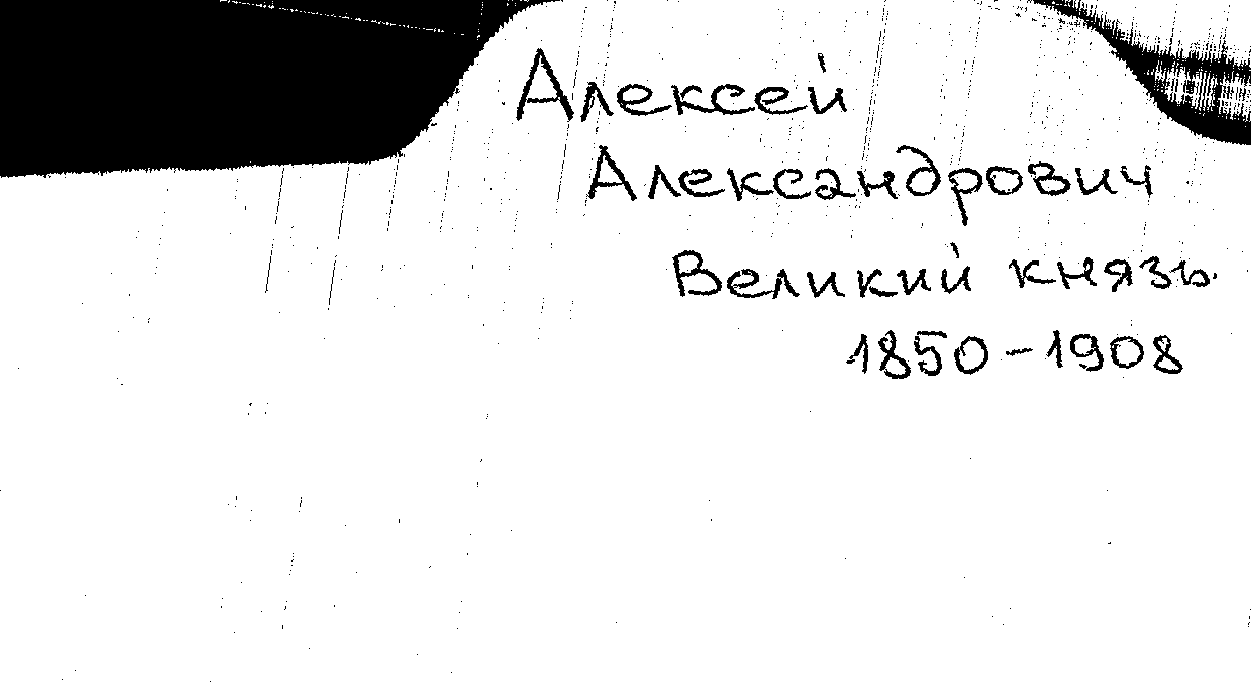 Алексей
Александрович
Великий князь.
1850-1908